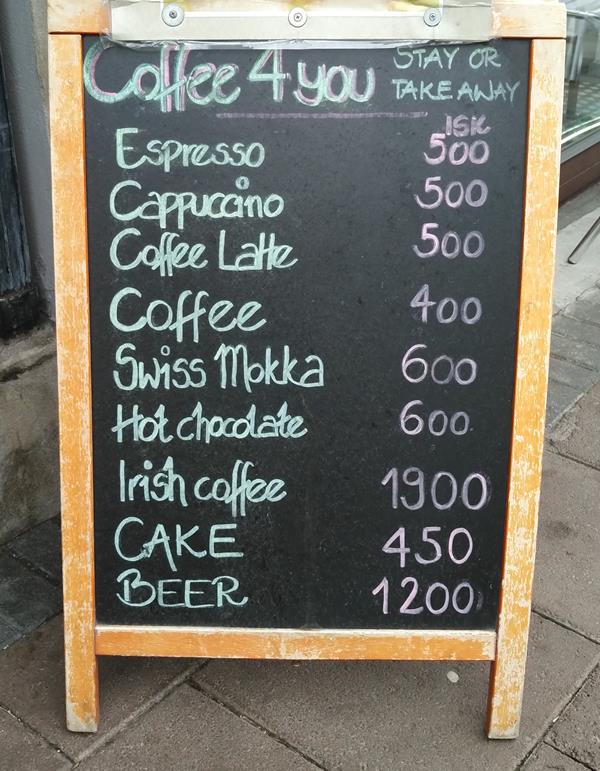 Coffee 4 you STAY OR
TAKE AWAY
ISK
Espresso 500
Cappuccino 500
Coffee Latte 500
Coffee 400
Swiss Mokka 600
Hot chocolate 600
Irish coffee 1900
CAKE 450
BEER 1200